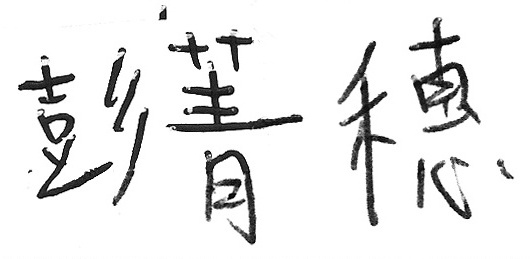 彭菁穗